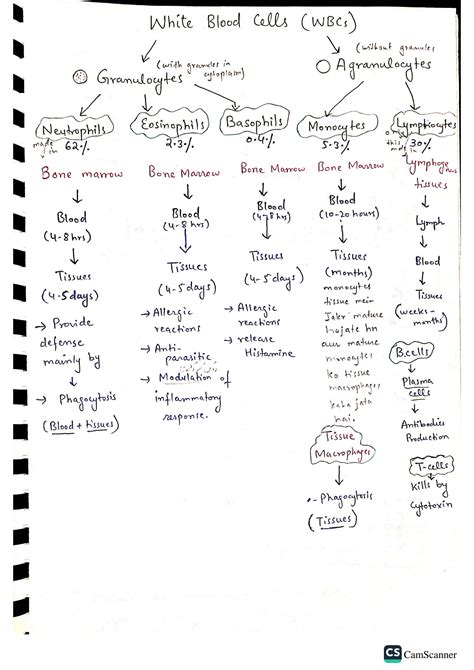 White Blood Cells (WBCs)
(with granules in
cytoplasm)
Granulocytes
(without granules
Agranulocytes
Neutrophils
made in
62.%
Bone marrow
Blood
(4-8 hrs)
Tissues
(4-5 days)
→ Provide
defense
mainly by
→ Phagocytosis
(Blood + tissues)
Eosinophils
2.3.%
Bone Marrow
Blood
(4-8 hrs)
Tissues
(4-5 days)
→ Allergic
reactions
→ Anti-
parasitic
→ Modulation of
inflammatory
response.
Basophils
0.4.%
Bone Marrow
Blood
(4-8 hrs)
Tissues
(4-5 days)
→ Allergic
reactions
→ release
Histamine
Monocytes
5.3.%
Bone Marrow
Blood
(10-20 hours)
Tissues
(months)
monocytes
tissue mein
Jakr mature
hojate hn
aur mature
monocytes
ko tissue
macrophages
kaha jata
hai.
Tissue
Macrophages
•- Phagocytosis
(Tissues)
Lymphocytes
only
this made in
30%
Lymphogenous
tissues
Lymph
Blood
Tissues
(weeks-
months)
B.cells
Plasma
cells
Antibodies
Production
T-cells
Kills by
Cytotoxin
CS CamScanner